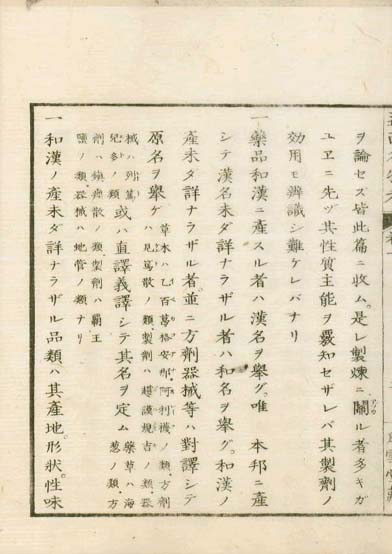 ヲ論セズ皆此篇ニ收ム。是レ製煉ニ關ル者多キガ
ユヱニ先ヅ其性質主能ヲ覈知セザレバ其製劑ノ
効用モ辨識シ難ケレバナリ
一藥品和漢ニ產スル者ハ漢名ヲ舉グ。唯本邦ニ產
シテ漢名未ダ詳ナラザル者ハ和名ヲ舉グ。和漢ノ
產未ダ詳ナラザル者。並ニ方劑器械等ハ對譯シテ
原名ヲ舉ゲ草木ハ乙百葛格安那。阿利襪ノ類。方劑
ハ見篤散ノ類製劑ハ趨謨規吉ノ類。器
械ハ列篤
兒多ノ類或ハ直譯義譯シテ其名ヲ定ム藥草ハ海
葱ノ類。方
劑ハ鎮痙散ノ類製劑ハ覇王
鹽ノ類。器械ハ地管ノ類ナリ
一和漢ノ產未ダ詳ナラザル品類ハ其產地。形狀。性味